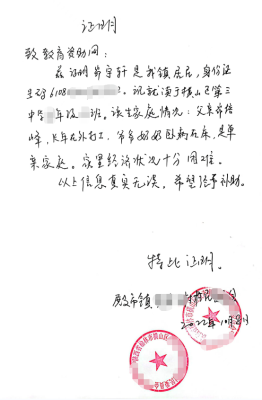 证明
致教育资助网:
兹证明 宇轩是我镇居民,身份证
号码6108
,现就读于横山区第三
中学 年级 班。该生家庭情况:父亲
峰,长年在外打工,爷爷奶奶卧病在床,是单
亲家庭。家里经济状况十分困难。
以上信息真实无误,希望给予补助。
特此证明。
殿市镇
2022年10月8日